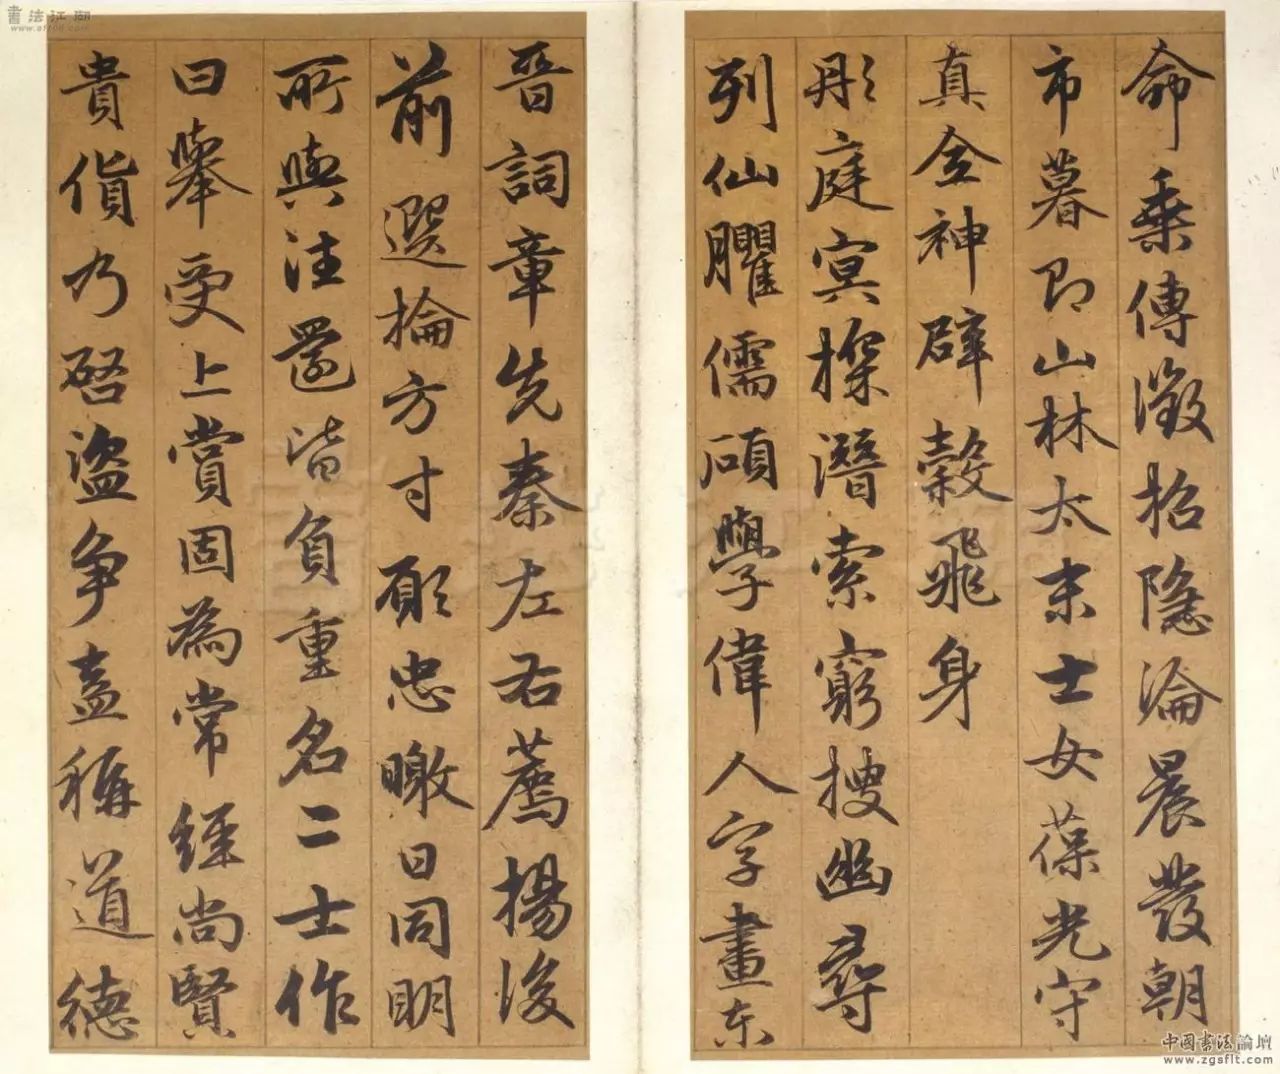 命乘傳徵招隱淪晨發朝
市暮即山林太末士女葆光守
真全神辟穀飛身
彤庭冥探潛索窮搜幽尋
列仙臞儒碩學偉人字畫東
晉詞章先秦左右薦揚後
前選掄方寸願忠曒日同明
所與注選皆負重名二士作
曰舉受上賞固為常經尚賢
貴貨乃啓盜争盍稱道德
書法江湖
中國書法論壇
www.zgsflt.com